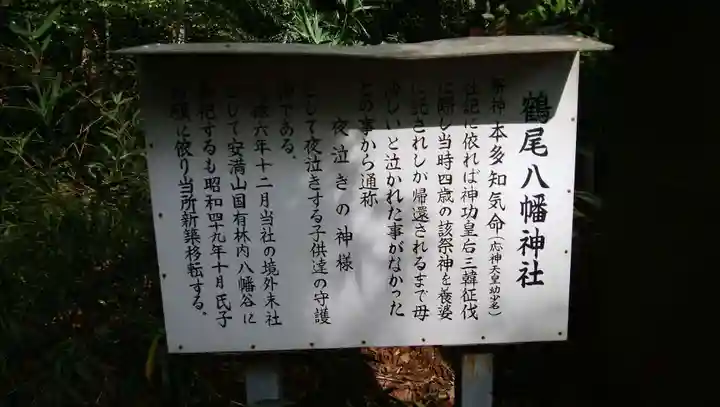 鶴尾八幡神社
祭神 本多知気命(応神天皇幼少名)
社記に依れば神功皇后三韓征伐
に際し当時四歳の該祭神を養婆
に託されしが帰還されるまで母
恋しいと泣かれた事がなかった
との事から通称
夜泣きの神様
として夜泣きする子供達の守護
神である。
六年十二月当社の境外末社
として安満山国有林内八幡谷に
祀するも昭和四十九年十月氏子
願に依り当所新築移転する。